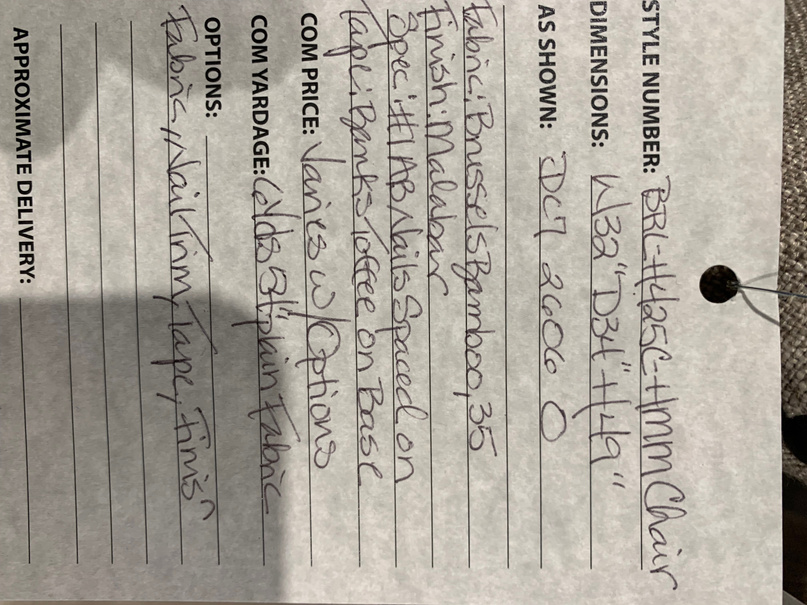 STYLE NUMBER: BRL-H425C-HMM Chair
DIMENSIONS: W32" D34" H49"
AS SHOWN: DC7 2606 O
Fabric: Brussels Bamboo, 35
Finish: Malabar
Spec: #1 AB Nails Spaced on
Tape: Banks Toffee on Base
COM PRICE: Varies w/Options
COM YARDAGE: 6Yds 54" plain Fabric
OPTIONS:
Fabric, Nail Trim, Tape, Finis
APPROXIMATE DELIVERY: